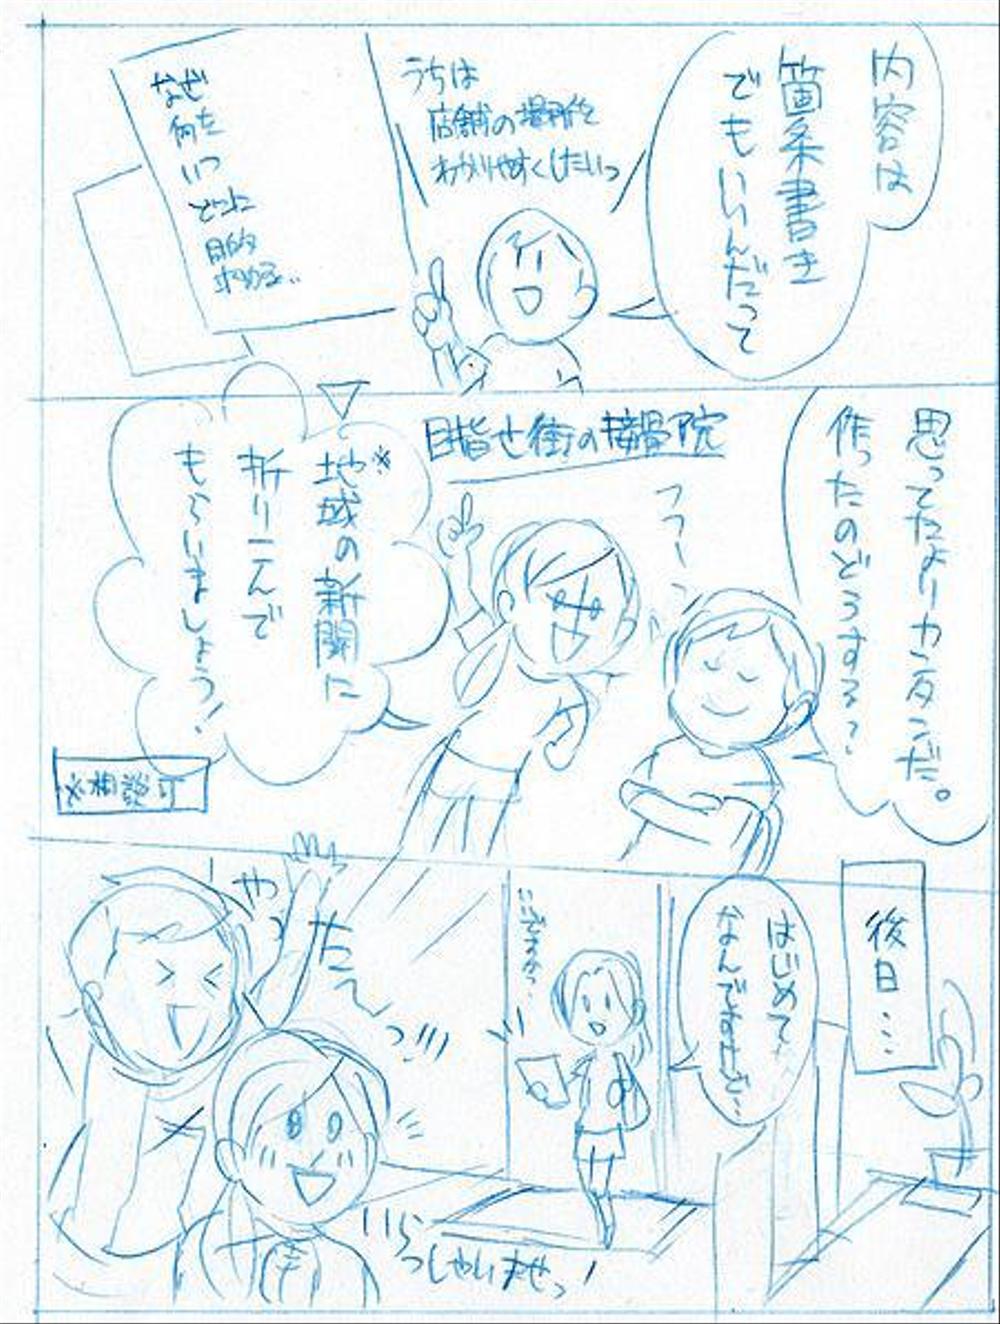 内容は
箇条書き
でもいいんだって
うちは
店舗の場所を
わかりやすくしたいっ
なぜ
何を
いつ
どこに
目的
求める…
思ってたよりカンタンだ。
作ったのどうする?
目指せ街の接骨院
※地域の新聞に
折りこんで
もらいましょう!
※相談可
後日…
はじめて
なんですけど…
いいですか…
やっ
たー
っ!!!
いらっしゃいませっ!